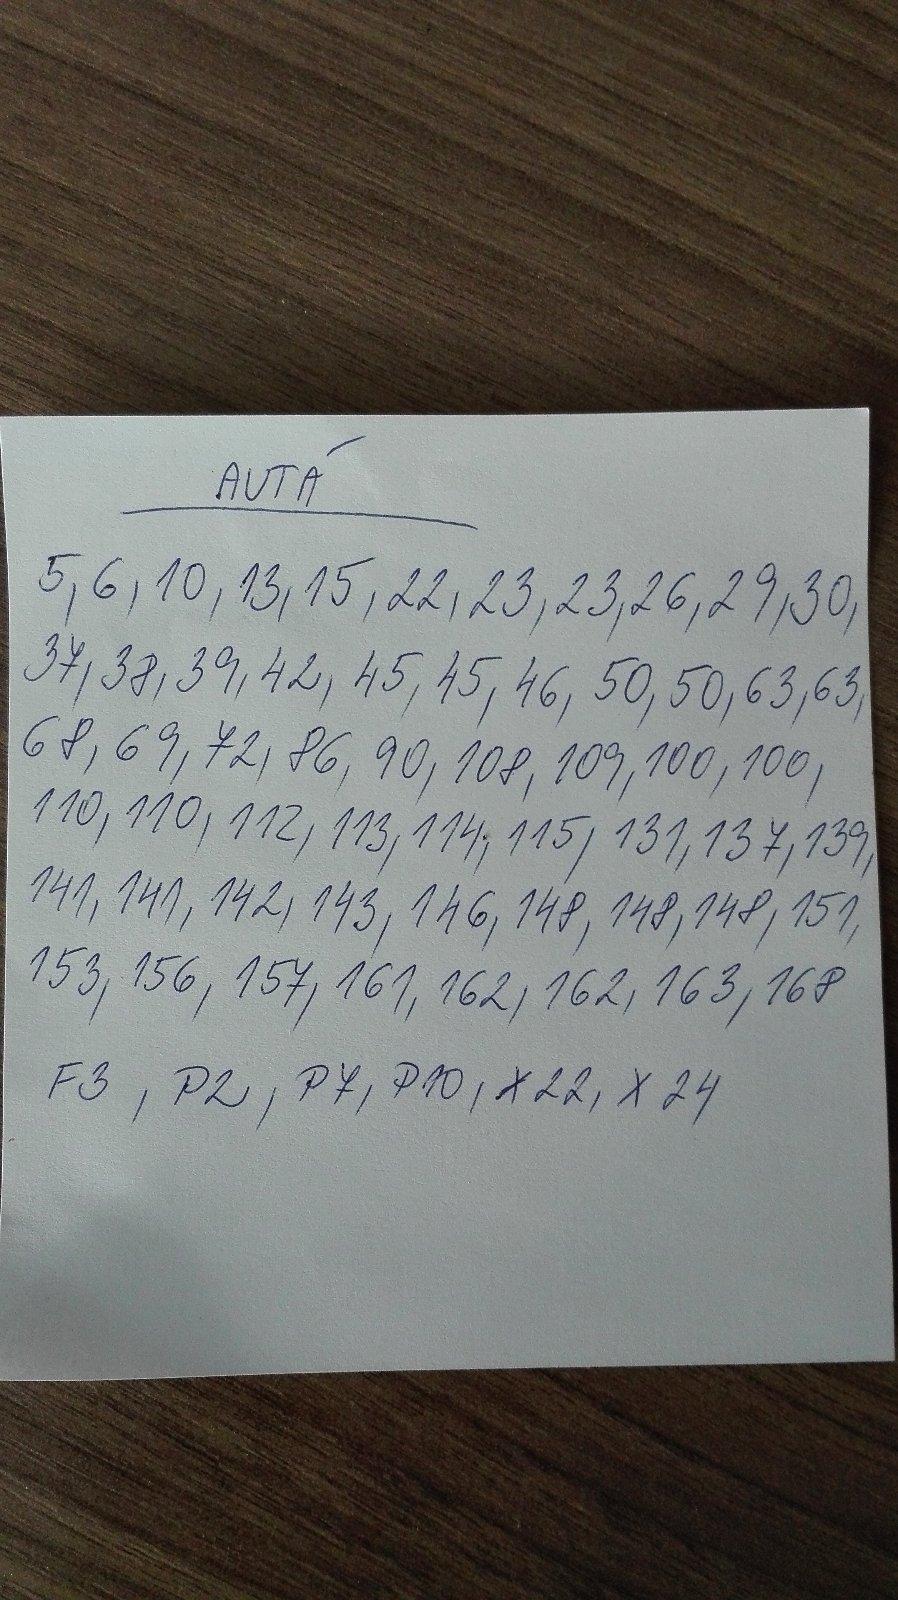 AUTÁ
5, 6, 10, 13, 15, 22, 23, 23, 26, 29, 30,
37, 38, 39, 42, 45, 45, 46, 50, 50, 63, 63,
68, 69, 72, 86, 90, 108, 109, 100, 100,
110, 110, 112, 113, 114, 115, 131, 137, 139,
141, 141, 142, 143, 146, 148, 148, 148, 151,
153, 156, 157, 161, 162, 162, 163, 168
F3, P2, P7, P10, X22, X24